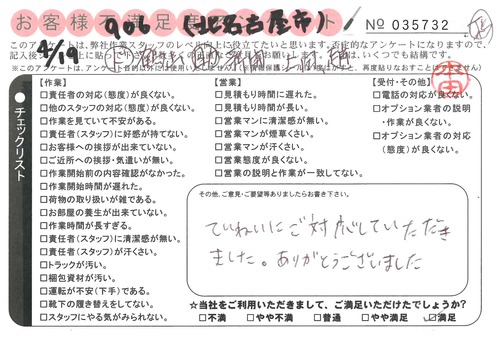 お客様満足度
906 (北名古屋市)
No 035732
4/19
このアンケートは、弊社作業スタッフのレベル向上に役立てたいと思います。否定的なアンケートになりますので、
チェックリスト
【作業】
□責任者の対応(態度)が良くない。
□他のスタッフの対応(態度)が良くない。
□作業を見ていて不安がある。
□責任者(スタッフ)に好感が持てない。
□お客様への挨拶が出来ていない。
□ご近所への挨拶・気遣いが無い。
□作業開始前の内容確認がなかった。
□作業開始時間が遅れた。
□荷物の取り扱いが雑である。
□お部屋の養生が出来ていない。
□作業時間が長すぎる。
□責任者(スタッフ)に清潔感が無い。
□責任者(スタッフ)が汗くさい。
□トラックが汚い。
□梱包資材が汚い。
□運転が不安(下手)である。
□靴下の履き替えをしてない。
□スタッフにやる気がみられない。
【営業】
□見積もり時間に遅れた。
□見積もり時間が長い。
□営業マンに清潔感が無い。
□営業マンが煙草くさい。
□営業マンが汗くさい。
□営業態度が良くない。
□営業の説明と作業が一致してない。
【受付・その他】
□電話の対応が良くない。
□オプション業者の説明
・作業が良くない。
□オプション業者の対応
(態度)が良くない。
その他、ご意見・ご要望等ありましたらお書き下さい。
ていねいにご対応していただき
ました。ありがとうございました
☆当社をご利用いただきまして、ご満足いただけたでしょうか?
□不満 □やや不満 □普通 □やや満足 ☑満足